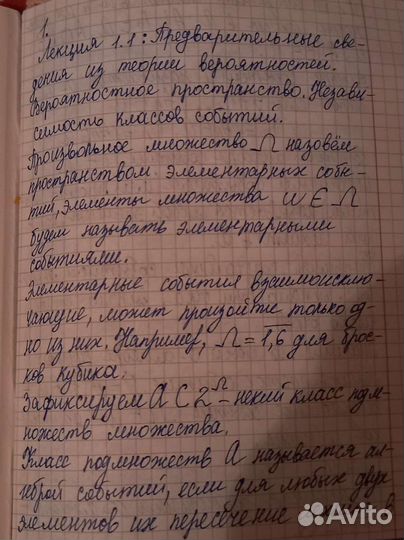 1.
Лекция 1.1: Предварительные све-
дения из теории вероятностей.
Вероятностное пространство. Незави-
симость классов событий.
Произвольное множество Ω назовём
пространством элементарных собы-
тий, элементы множества ω ∈ Ω
будем называть элементарными
событиями.
Элементарные события взаимоисклю-
чающие, может произойти только од-
но из них. Например, Ω = 1,6 для брос-
ков кубика.
Зафиксируем A ⊂ 2^Ω – некий класс подм-
ножеств множества.
Класс подмножеств A называется ал-
геброй событий, если для любых двух
элементов их пересечение
Avito